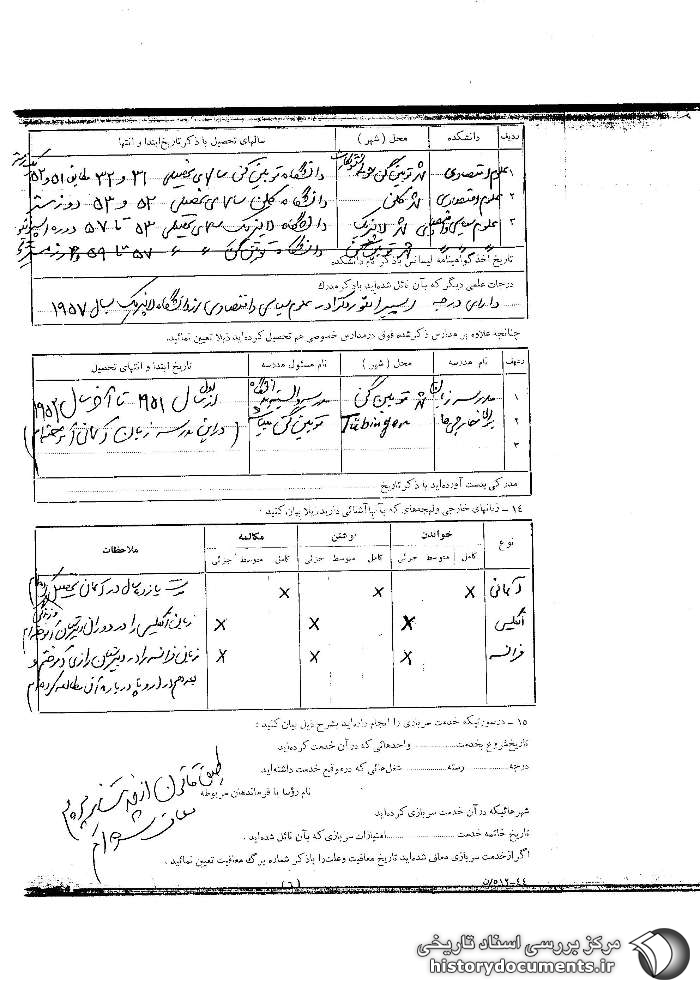 ردیف دانشکده محل ( شهر ) سالهای تحصیل با ذکر تاریخ ابتدا و انتها
۱ علوم اقتصادی شهر توبین گن دانشگاه توبین گن سالهای تحصیلی ۳۱ و ۳۲ مطابق ۵۱ و ۵۲
۲ علوم اقتصادی شهر کلن دانشگاه کلن سالهای تحصیلی ۵۲ و ۵۳ دو زمستر
۳ علوم سیاسی و اقتصادی شهر لایپزیک دانشگاه لایپزیک سالهای تحصیلی ۵۳ تا ۵۷ دوره
شهر توبین گن دانشگاه توبین گن ۵۷ تا ۵۹
تاریخ اخذ گواهینامه لیسانس با ذکر نام دانشکده
درجات علمی دیگر که بآن نائل شده‌اید با ذکر مدرك
دارای درجه در علوم سیاسی و اقتصادی از دانشگاه لایپزیک بسال ۱۹۵۷
چنانچه علاوه بر مدارس ذکر شده فوق در مدارس خصوصی هم تحصیل کرده‌اید ذیلا تعیین نمائید.
ردیف نام مدرسه محل ( شهر ) نام مسئول مدرسه تاریخ ابتدا و انتهای تحصیل
۱ مدرسه زبان شهر توبین گن مدرسه وابسته بدانشگاه از اول سال ۱۹۵۱ تا آخر سال ۱۹۵۲
۲ برای خارجی‌ها Tübingen توبین گن میباشد ( در این مدرسه زبان آلمانی آموخته‌ام )
۳
مدرکی بدست آورده‌اید با ذکر تاریخ
۱۴ ــ زبانهای خارجی ولهجه‌های که بآن آشنائی دارید، ذیلا بیان کنید :
نوع خواندن نوشتن مکالمه ملاحظات
کامل متوسط جزئی کامل متوسط جزئی کامل متوسط جزئی
آلمانی × × × مدت یازده سال در آلمان تحصیل
انگلیسی × × × زبان انگلیسی را در دوران دبیرستان آموخته‌ام
فرانسه × × × زبان فرانسه را در دبیرستان رازی آموختم و
بعد هم در اروپا درباره آن مطالعه کرده‌ام
۱۵ ــ درصورتیکه خدمت سربازی را انجام داده‌اید بشرح ذیل بیان کنید :
تاریخ شروع بخدمت ............ واحدهائی که در آن خدمت کرده‌اید
درجه ............ رسته ............ شغل‌هائی که در موقع خدمت داشته‌اید.
نام رؤسا یا فرماندهان مربوطه
طبق قانون از خدمت
معاف شده‌ام
شهرهائیکه در آن خدمت سربازی کرده‌اید
تاریخ خاتمه خدمت ............ امتیازات سربازی که بآن نائل شده‌اید .
اگر از خدمت سربازی معافی شده‌اید تاریخ معافیت وعلت را با ذکر شماره برگ معافیت تعیین نمائید .
(٦)
مرکز بررسی اسناد تاریخی
historydocuments.ir